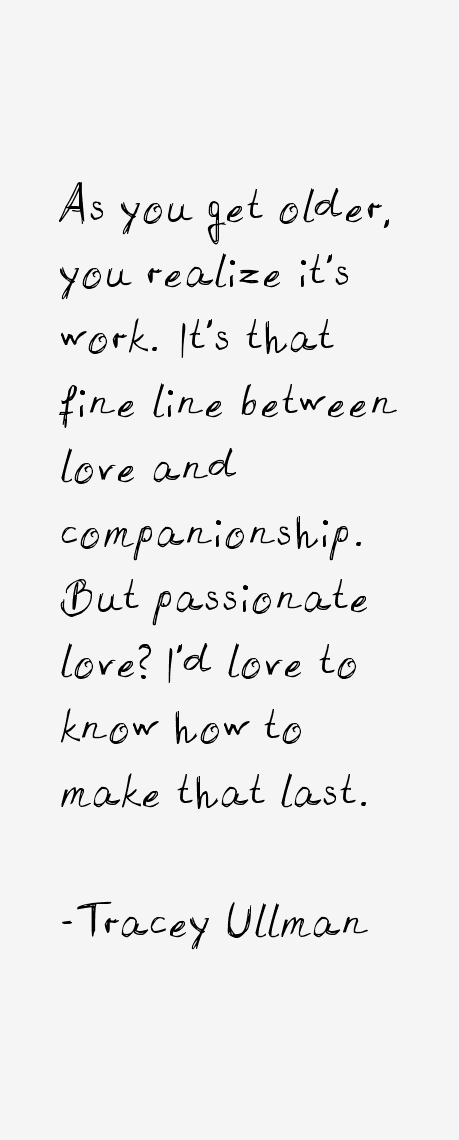 As you get older,
you realize it's
work. It's that
fine line between
love and
companionship.
But passionate
love? I'd love to
know how to
make that last.
-Tracey Ullman